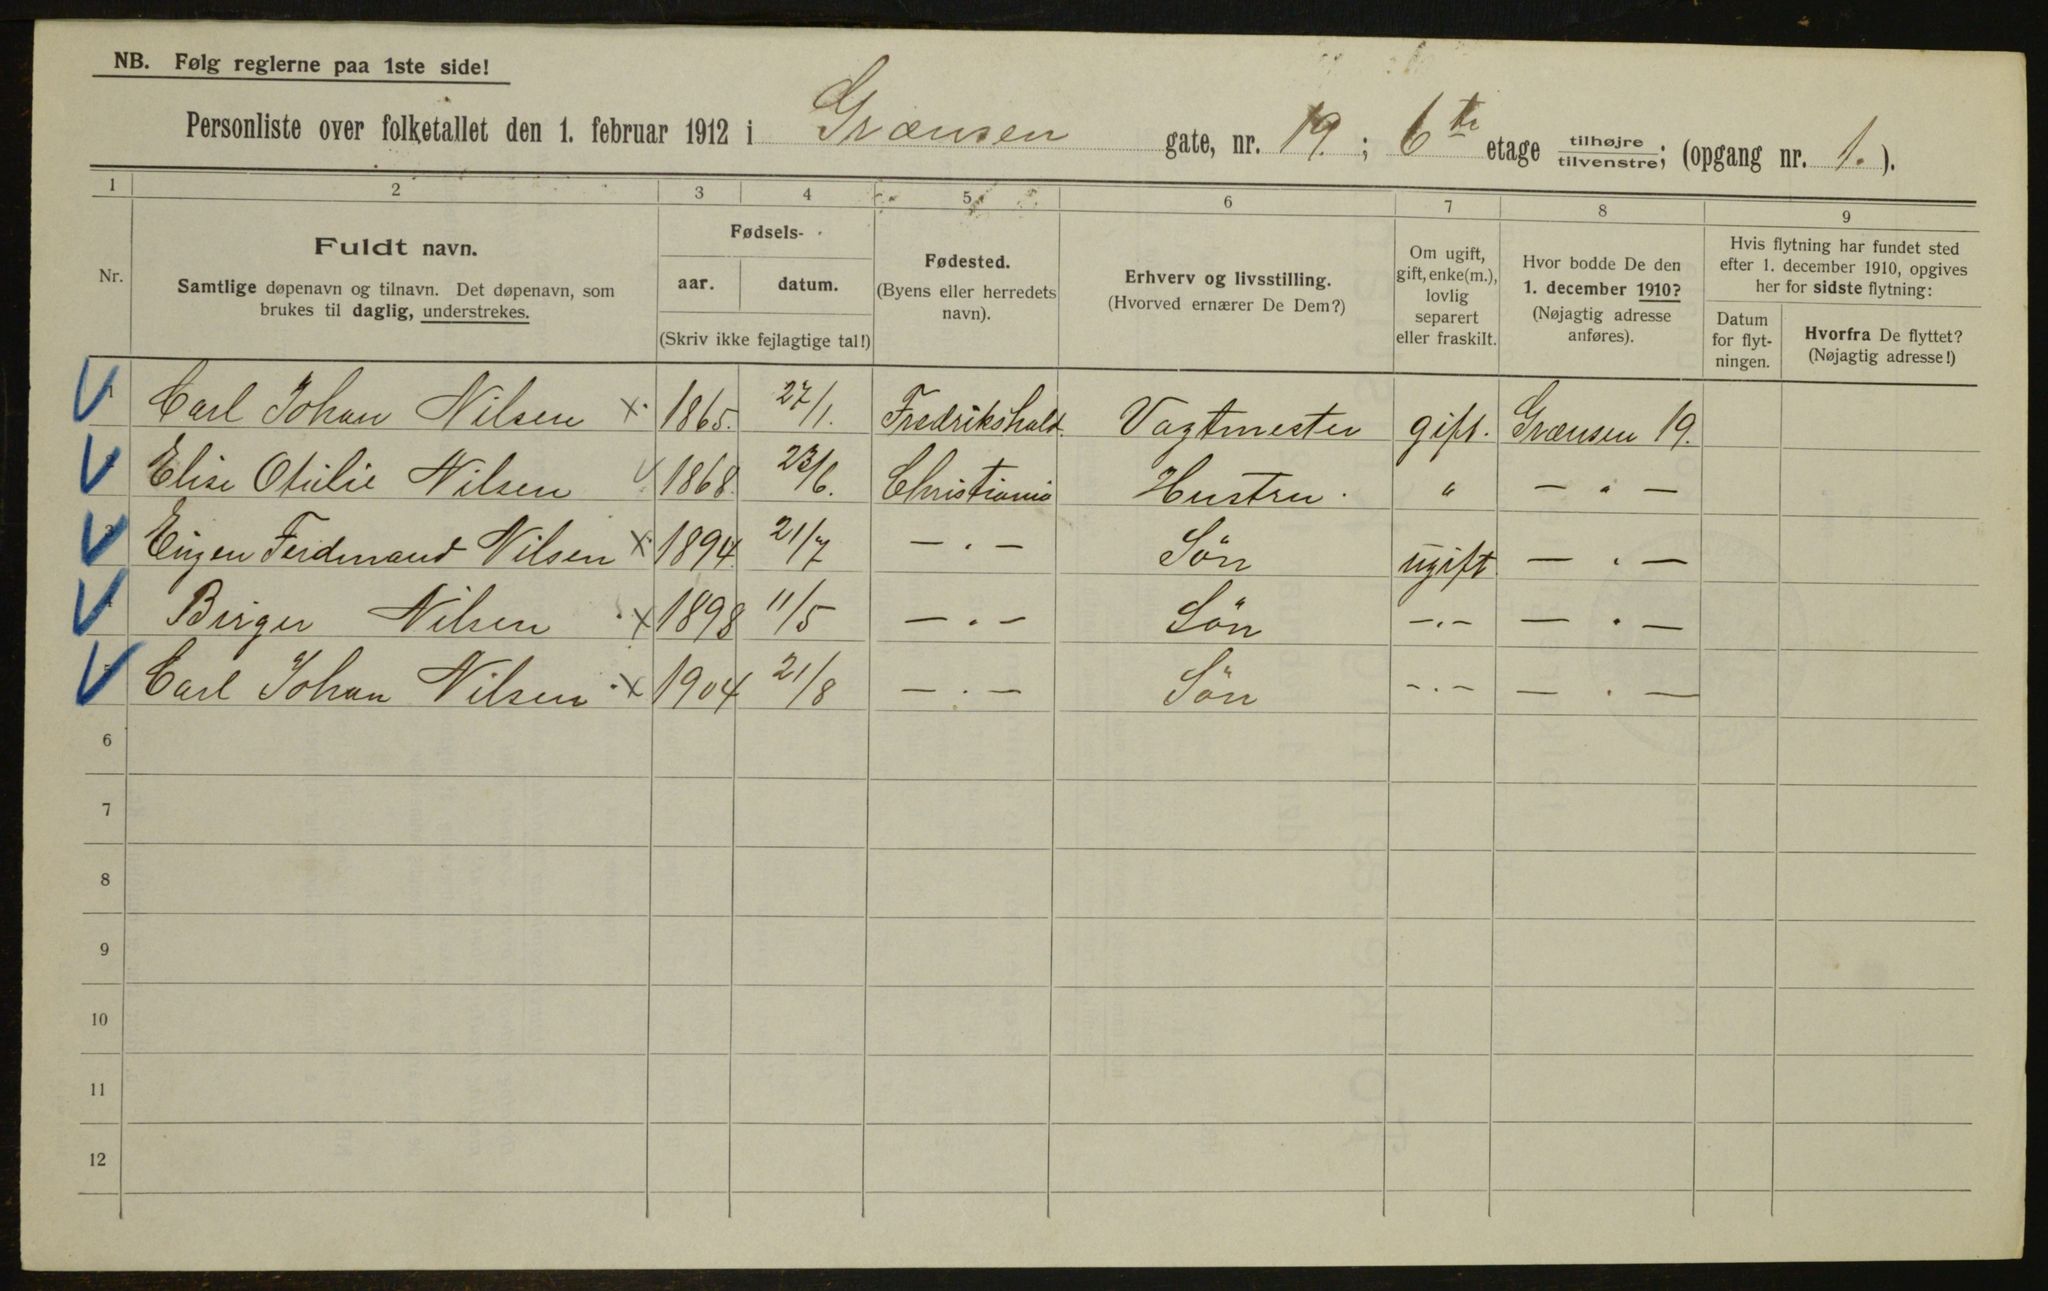 NB. Følg reglerne paa 1ste side!
Personliste over folketallet den 1. februar 1912 i Grænsen gate, nr. 19. ; 6te etage tilhøjre / tilvenstre; (opgang nr. 1. ).
1 2 3 4 5 6 7 8 9
Nr.
Fuldt navn.
Samtlige døpenavn og tilnavn. Det døpenavn, som
brukes til daglig, understrekes.
Fødsels-
aar. datum.
(Skriv ikke fejlagtige tal!)
Fødested.
(Byens eller herredets
navn).
Erhverv og livsstilling.
(Hvorved ernærer De Dem?)
Om ugift,
gift, enke(m.),
lovlig
separert
eller fraskilt.
Hvor bodde De den
1. december 1910?
(Nøjagtig adresse
anføres).
Hvis flytning har fundet sted
efter 1. december 1910, opgives
her for sidste flytning:
Datum
for flyt-
ningen.
Hvorfra De flyttet?
(Nøjagtig adresse!)
1 Carl Johan Nilsen x 1865. 27/1. Fredrikshald. Vagtmester gift. Grænsen 19.
2 Elise Otilie Nilsen 1868. 23/6. Christiania Hustru. " — " —
3 Eugen Ferdinand Nilsen x 1894. 21/7 — . — Søn ugift — . —
4 Birger Nilsen x 1898 11/5 — . — Søn — . — — . —
5 Carl Johan Nilsen x 1904 21/8 — . — Søn — . — — . —
6
7
8
9
10
11
12